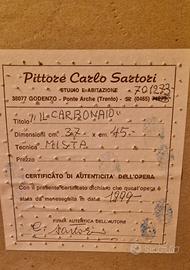 Pittore Carlo Sartori
STUDIO E ABITAZIONE
701273
38077 GODENZO - Ponte Arche (Trento) - Tel. (0465)
Titolo "IL CARBONAIO"
Dimensioni cm. 37 x cm. 45
Tecnica MISTA
Prezzo
CERTIFICATO DI AUTENTICITÀ DELL'OPERA
Con il presente certificato dichiaro che quest'opera è
stata da me eseguita in data 1999
FIRMA AUTENTICA DELL'AUTORE
C. Sartori
subito